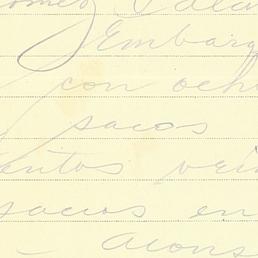 Embarq
con och
sacos
entos vein
sacos en
acons